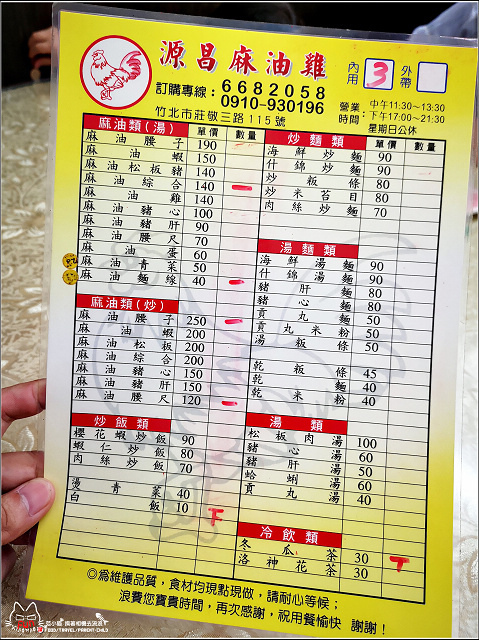 源昌麻油雞
訂購專線：6682058
0910-930196
竹北市莊敬三路115號
內用 3 外帶
營業時間：中午11:30~13:30
下午17:00~21:30
星期日公休
麻油類(湯) 單價 數量
麻油腰子 190
麻油蝦 150
麻油松板豬 140
麻油綜合 140
麻油雞 140
麻油豬心 100
麻油豬肝 90
麻油腰尺 70
麻油蛋 60
麻油青菜 50
麻油麵線 40
麻油類(炒)
麻油腰子 250
麻油蝦 200
麻油松板 200
麻油綜合 200
麻油豬心 150
麻油豬肝 150
麻油腰尺 120
炒飯類
櫻花蝦炒飯 90
蝦仁炒飯 80
肉絲炒飯 70
燙青菜 40
白飯 10
炒麵類 單價 數量
海鮮炒麵 90
什錦炒麵 90
炒粄條 80
炒米苔目 80
肉絲炒麵 70
湯麵類
海鮮湯麵 90
什錦湯麵 90
豬肝麵 80
豬心麵 80
貢丸麵 50
貢丸米粉 50
湯粄條 50
乾粄條 45
乾麵 40
乾米粉 40
湯類
松板肉湯 100
豬心湯 60
豬肝湯 50
蛤蜊湯 60
貢丸湯 40
冷飲類
冬瓜茶 30
洛神花茶 30
◎為維護品質，食材均現點現做，請耐心等候；
浪費您寶貴時間，再次感謝，祝用餐愉快 謝謝！